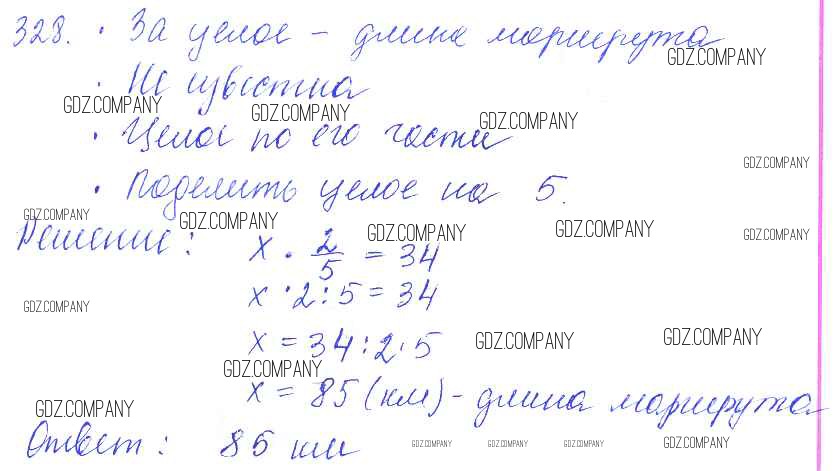 328. · За целое – длина маршрута
GDZ.COMPANY
· Не известна
GDZ.COMPANY GDZ.COMPANY GDZ.COMPANY
· Целое по его части
GDZ.COMPANY
· Поделить целое на 5.
GDZ.COMPANY GDZ.COMPANY GDZ.COMPANY GDZ.COMPANY GDZ.COMPANY
Решение: x · 2/5 = 34
x · 2 : 5 = 34
GDZ.COMPANY
x = 34 : 2 · 5
GDZ.COMPANY GDZ.COMPANY
GDZ.COMPANY
x = 85 (км) – длина маршрута
GDZ.COMPANY
Ответ: 85 км
GDZ.COMPANY GDZ.COMPANY GDZ.COMPANY GDZ.COMPANY